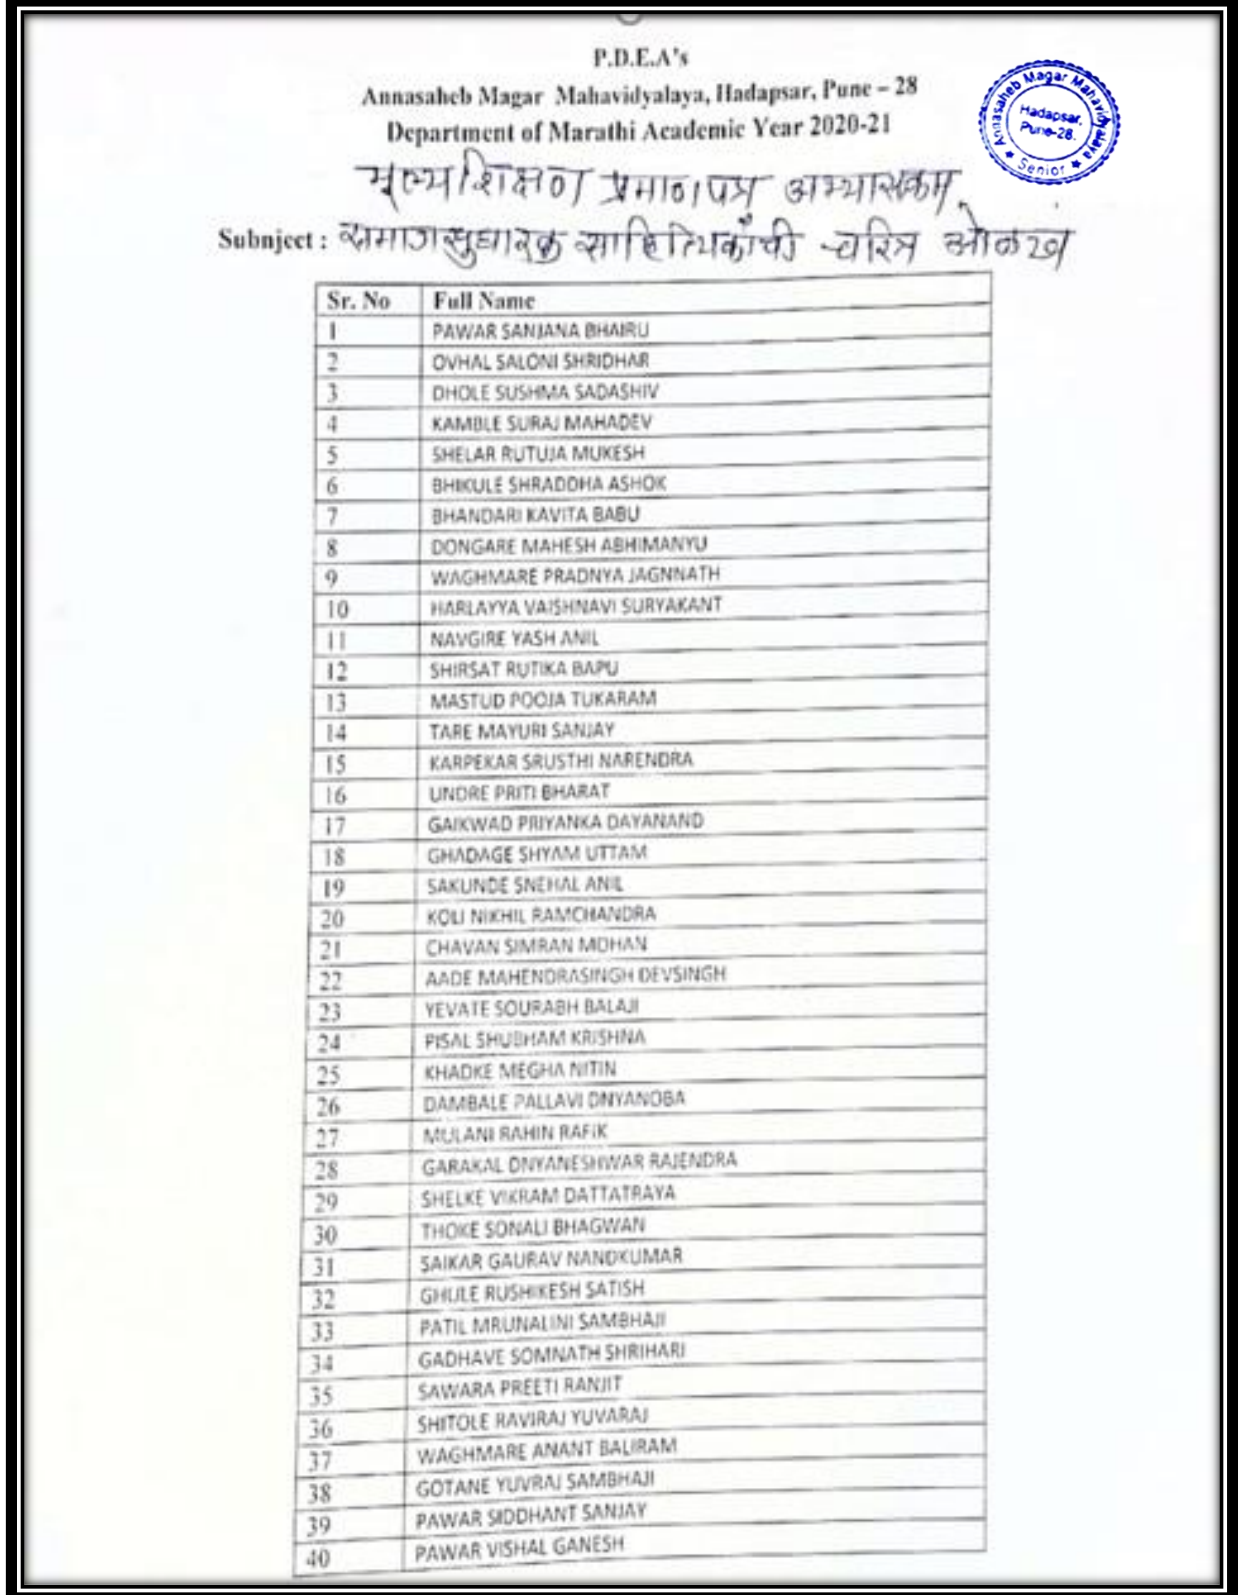 P.D.E.A's
Annasaheb Magar Mahavidyalaya, Hadapsar, Pune – 28
Department of Marathi Academic Year 2020-21
Annasaheb Magar Mahavidyalaya
Hadapsar,
Pune-28.
★ Senior ★
मूल्यशिक्षण प्रमाणपत्र अभ्यासक्रम.
Subnject : समाजसुधारक साहित्यिकांची चरित्र ओळख
Sr. No Full Name
1 PAWAR SANJANA BHAIRU
2 OVHAL SALONI SHRIDHAR
3 DHOLE SUSHMA SADASHIV
4 KAMBLE SURAJ MAHADEV
5 SHELAR RUTUJA MUKESH
6 BHIKULE SHRADDHA ASHOK
7 BHANDARI KAVITA BABU
8 DONGARE MAHESH ABHIMANYU
9 WAGHMARE PRADNYA JAGNNATH
10 HARLAYYA VAISHNAVI SURYAKANT
11 NAVGIRE YASH ANIL
12 SHIRSAT RUTIKA BAPU
13 MASTUD POOJA TUKARAM
14 TARE MAYURI SANJAY
15 KARPEKAR SRUSTHI NARENDRA
16 UNDRE PRITI BHARAT
17 GAIKWAD PRIYANKA DAYANAND
18 GHADAGE SHYAM UTTAM
19 SAKUNDE SNEHAL ANIL
20 KOLI NIKHIL RAMCHANDRA
21 CHAVAN SIMRAN MOHAN
22 AADE MAHENDRASINGH DEVSINGH
23 YEVATE SOURABH BALAJI
24 PISAL SHUBHAM KRISHNA
25 KHADKE MEGHA NITIN
26 DAMBALE PALLAVI DNYANOBA
27 MULANI RAHIN RAFIK
28 GARAKAL DNYANESHWAR RAJENDRA
29 SHELKE VIKRAM DATTATRAYA
30 THOKE SONALI BHAGWAN
31 SAIKAR GAURAV NANDKUMAR
32 GHULE RUSHIKESH SATISH
33 PATIL MRUNALINI SAMBHAJI
34 GADHAVE SOMNATH SHRIHARI
35 SAWARA PREETI RANJIT
36 SHITOLE RAVIRAJ YUVARAJ
37 WAGHMARE ANANT BALIRAM
38 GOTANE YUVRAJ SAMBHAJI
39 PAWAR SIDDHANT SANJAY
40 PAWAR VISHAL GANESH